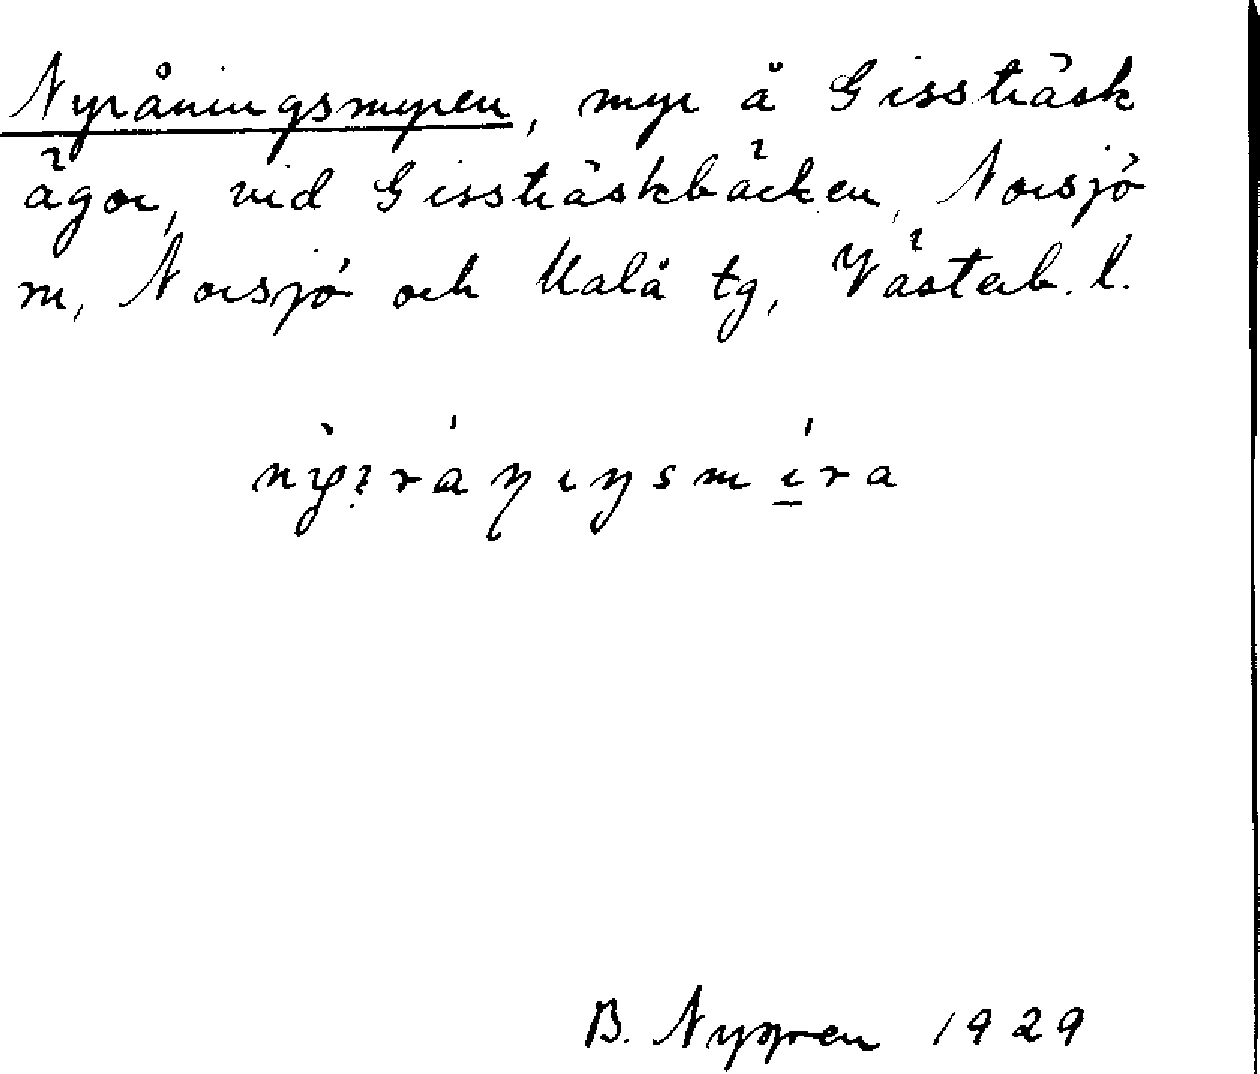 Nyråningsmyren, myr å Gissträsk
ägor, vid Gissträskbäcken, Norsjö
m, Norsjö och Malå tg, Västerb. l.
B. Nygren 1929